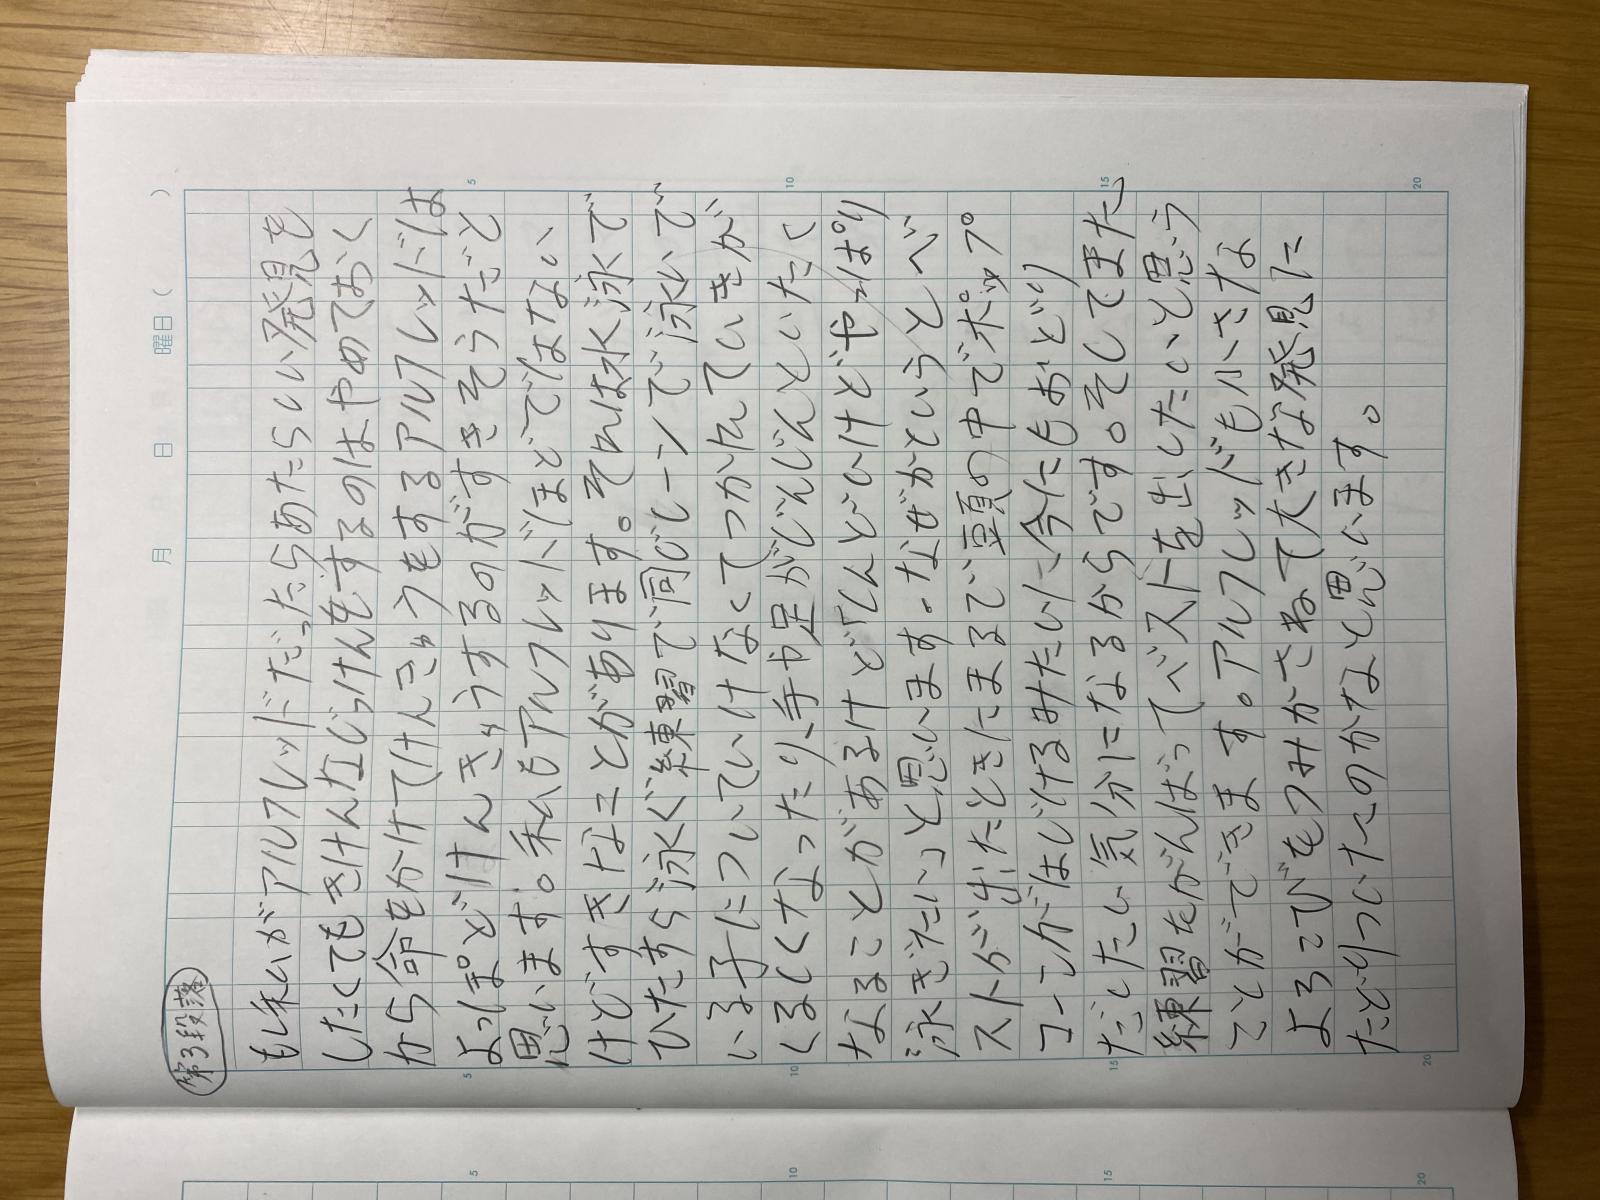 月 日 曜日( )
第3段落
もし私がアルフレッドだったらあたらしい発見を
したくてもきけんなじっけんをするのはやめておく
から命をかけてけんきゅうをするアルフレッドは
よっぽどけんきゅうするのがすきそうだと
思います。私もアルフレッドほどではない
けどすきなことがあります。それは水泳で
ひたすら泳ぐ練習で同じレーンで泳いで
いる子についていけなくてつかれていきが
くるしくなったり、手や足がじんじんといたく
なることがあるけど「しんどいけどやっぱり
泳ぎたいっと思います。なぜかというとベ
ストが出たときにまるで頭の中でポップ
コーンがはじけるみたいに今にもおどり
だしたい気分になるからです。そしてまた
練習をがんばってベストを出したいと思う
ことができます。アルフレッドも小さな
よろこびをつみかさねて大きな発見に
たどりついたのかなと思います。
5
10
15
20
5
10
15
20
5
10
15
20